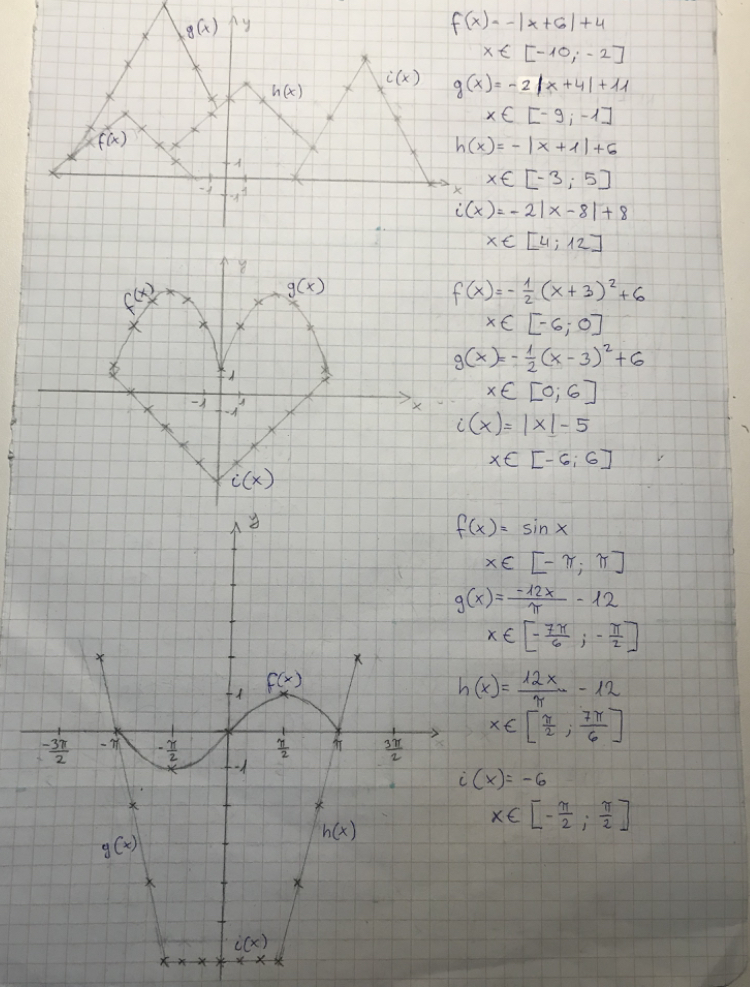 y
g(x)
h(x)
i(x)
f(x)
1
-1
1
-1
x
f(x) = -|x+6|+4
x ∈ [-10; -2]
g(x) = -2|x+4|+11
x ∈ [-9; -1]
h(x) = -|x+1|+6
x ∈ [-3; 5]
i(x) = -2|x-8|+8
x ∈ [4; 12]
y
f(x)
g(x)
1
-1
1
-1
x
i(x)
f(x) = -1/2 (x+3)²+6
x ∈ [-6; 0]
g(x) = -1/2 (x-3)²+6
x ∈ [0; 6]
i(x) = |x|-5
x ∈ [-6; 6]
y
f(x)
1
-3π/2
-π
-π/2
π/2
π
3π/2
-1
g(x)
h(x)
i(x)
f(x) = sin x
x ∈ [-π; π]
g(x) = -12x/π - 12
x ∈ [-7π/6; -π/2]
h(x) = 12x/π - 12
x ∈ [π/2; 7π/6]
i(x) = -6
x ∈ [-π/2; π/2]